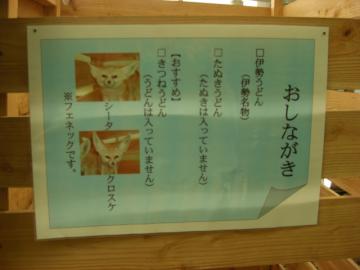 おしながき
□伊勢うどん
(伊勢名物)
□たぬきうどん
(たぬきは入っていません)
【おすすめ】
□きつねうどん
(うどんは入っていません)
シータ
クロスケ
※フェネックです。